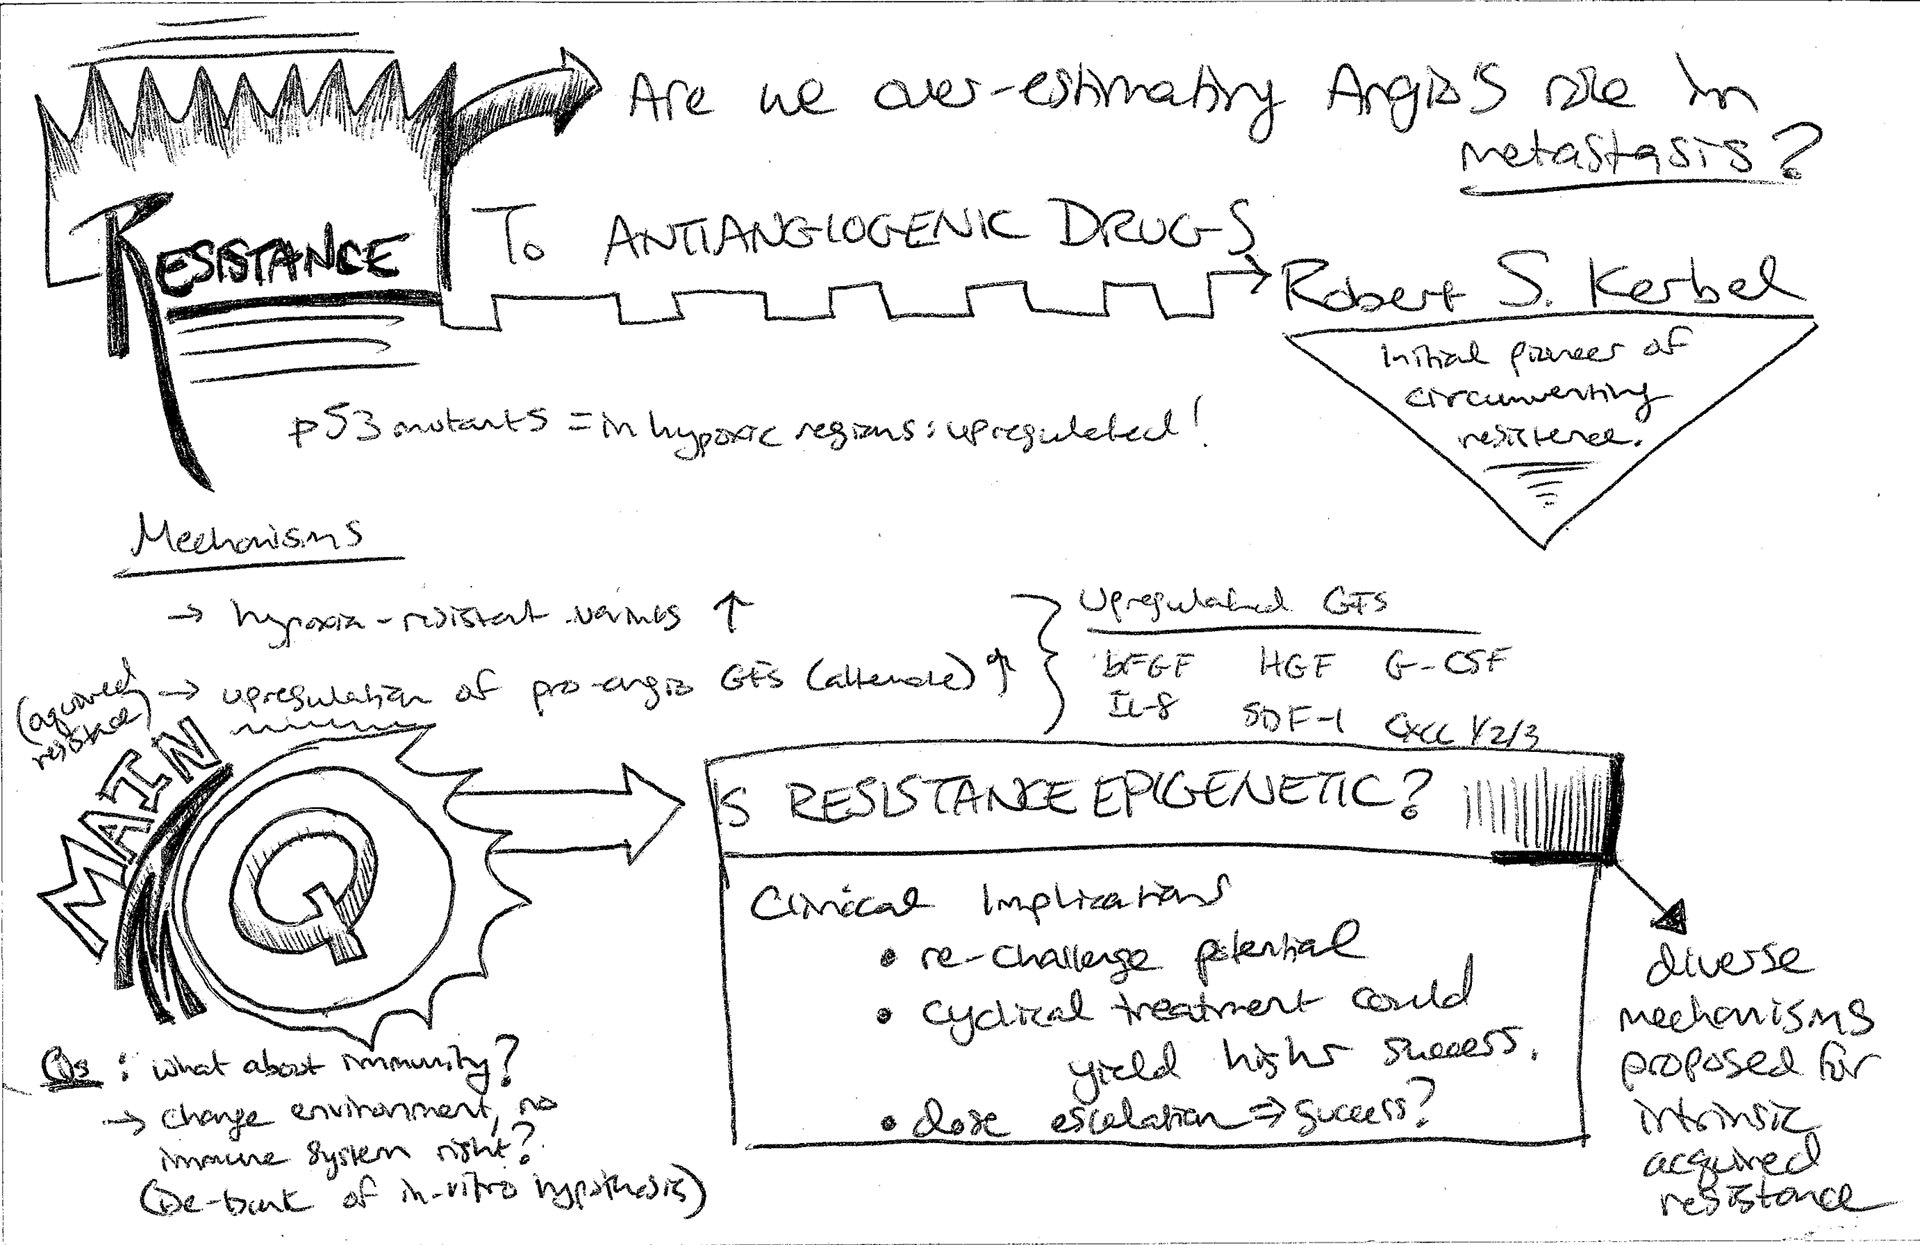 Are we over-estimating Angio's role in
metastasis?
RESISTANCE To ANTIANGIOGENIC DRUGS
Robert S. Kerbel
Initial pioneer of
circumventing
resistence.
p53 mutants = in hypoxic regions: upregulated!
Mechanisms
→ hypoxia-resistant ↑
(aquired
resistance)
→ upregulation of pro-angio GFs (alternate) ↑
Upregulated GFs
bFGF HGF G-CSF
IL-8 SDF-1 CXCL 1/2/3
MAIN
Q
IS RESISTANCE EPIGENETIC?
Clinical Implications
• re-challenge potential
• cyclical treatment could
yield higher success.
• dose escalation ⇒ success?
diverse
mechanisms
proposed for
intrinsic
acquired
resistance
Qs: What about immunity?
→ change environment, no
immune system right?
(De-bunk of in-vitro hypothesis)